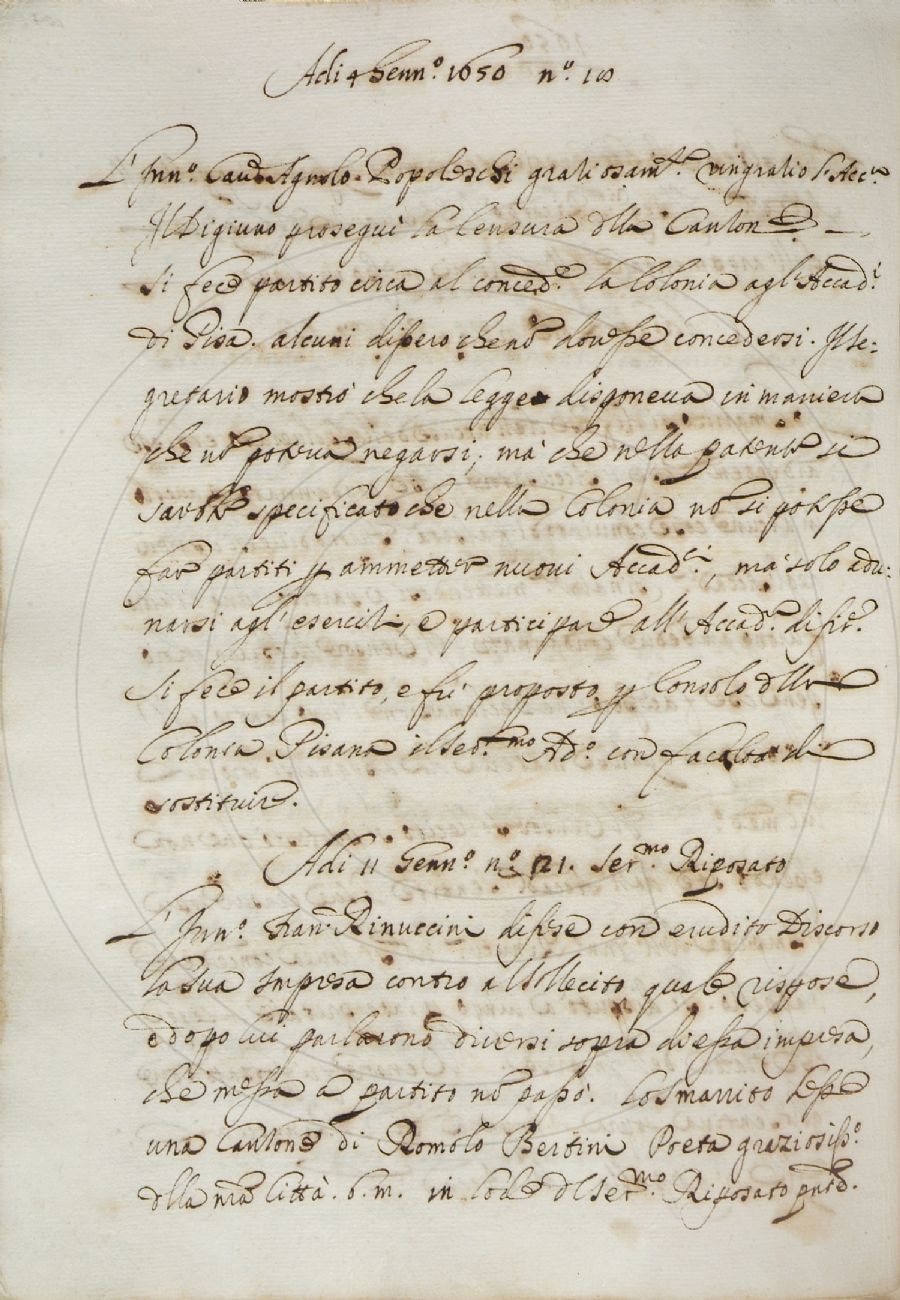 Adi 4 Genn.º 1650 nº. 18
L'Inn.º Cau.re Agnolo Popoleschi gratiosam.te ringratiò l'Acc.a
Il Digiuno proseguì la Censura dlla Canzone
Si fece partito circa al conced.e la Colonia agl'Accad.i
di Pisa. alcuni dissero che nō douesse concedersi. Il Se=
gretario mostrò che la legge disponeua in maniera
che nō poteua negarsi; mà che nella patente si
sarebbe specificato che nella Colonia nō si potesse
far partiti p ammetter nuoui Accad.i, mà solo adu=
narsi agl'esercitii, e participare all'Accad.a di fir.e
Si fece il partito, e fù proposto p Consolo dlla
Colonia Pisana il Ser.mo Ad.º con facoltà di
sostituire.
Adi 11 Genn.º nº. 21. Ser.mo Riposato
L'Inn.º Fran.º Rinuccini difese con erudito Discorso
la sua Impresa contro al Sollecito quale rispose,
e dopo lui parlarono diuersi sopra di essa impresa,
che messa a partito nō passò. Lo Smarrito lesse
una Canzone di Romolo Bertini Poeta graziosiss.º
dlla nrā Città. b.m. in lode dl Ser.mo Riposato pnte.